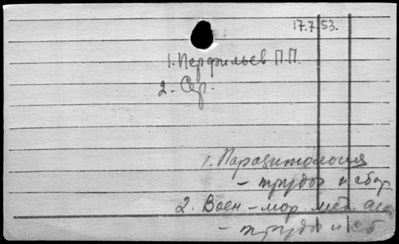 17.7.53.
1. Перфильев П.П.
2. Сер.
1. Паразитология
- труды и сбор.
2. Воен - мор. мед. ака
- труды и сб